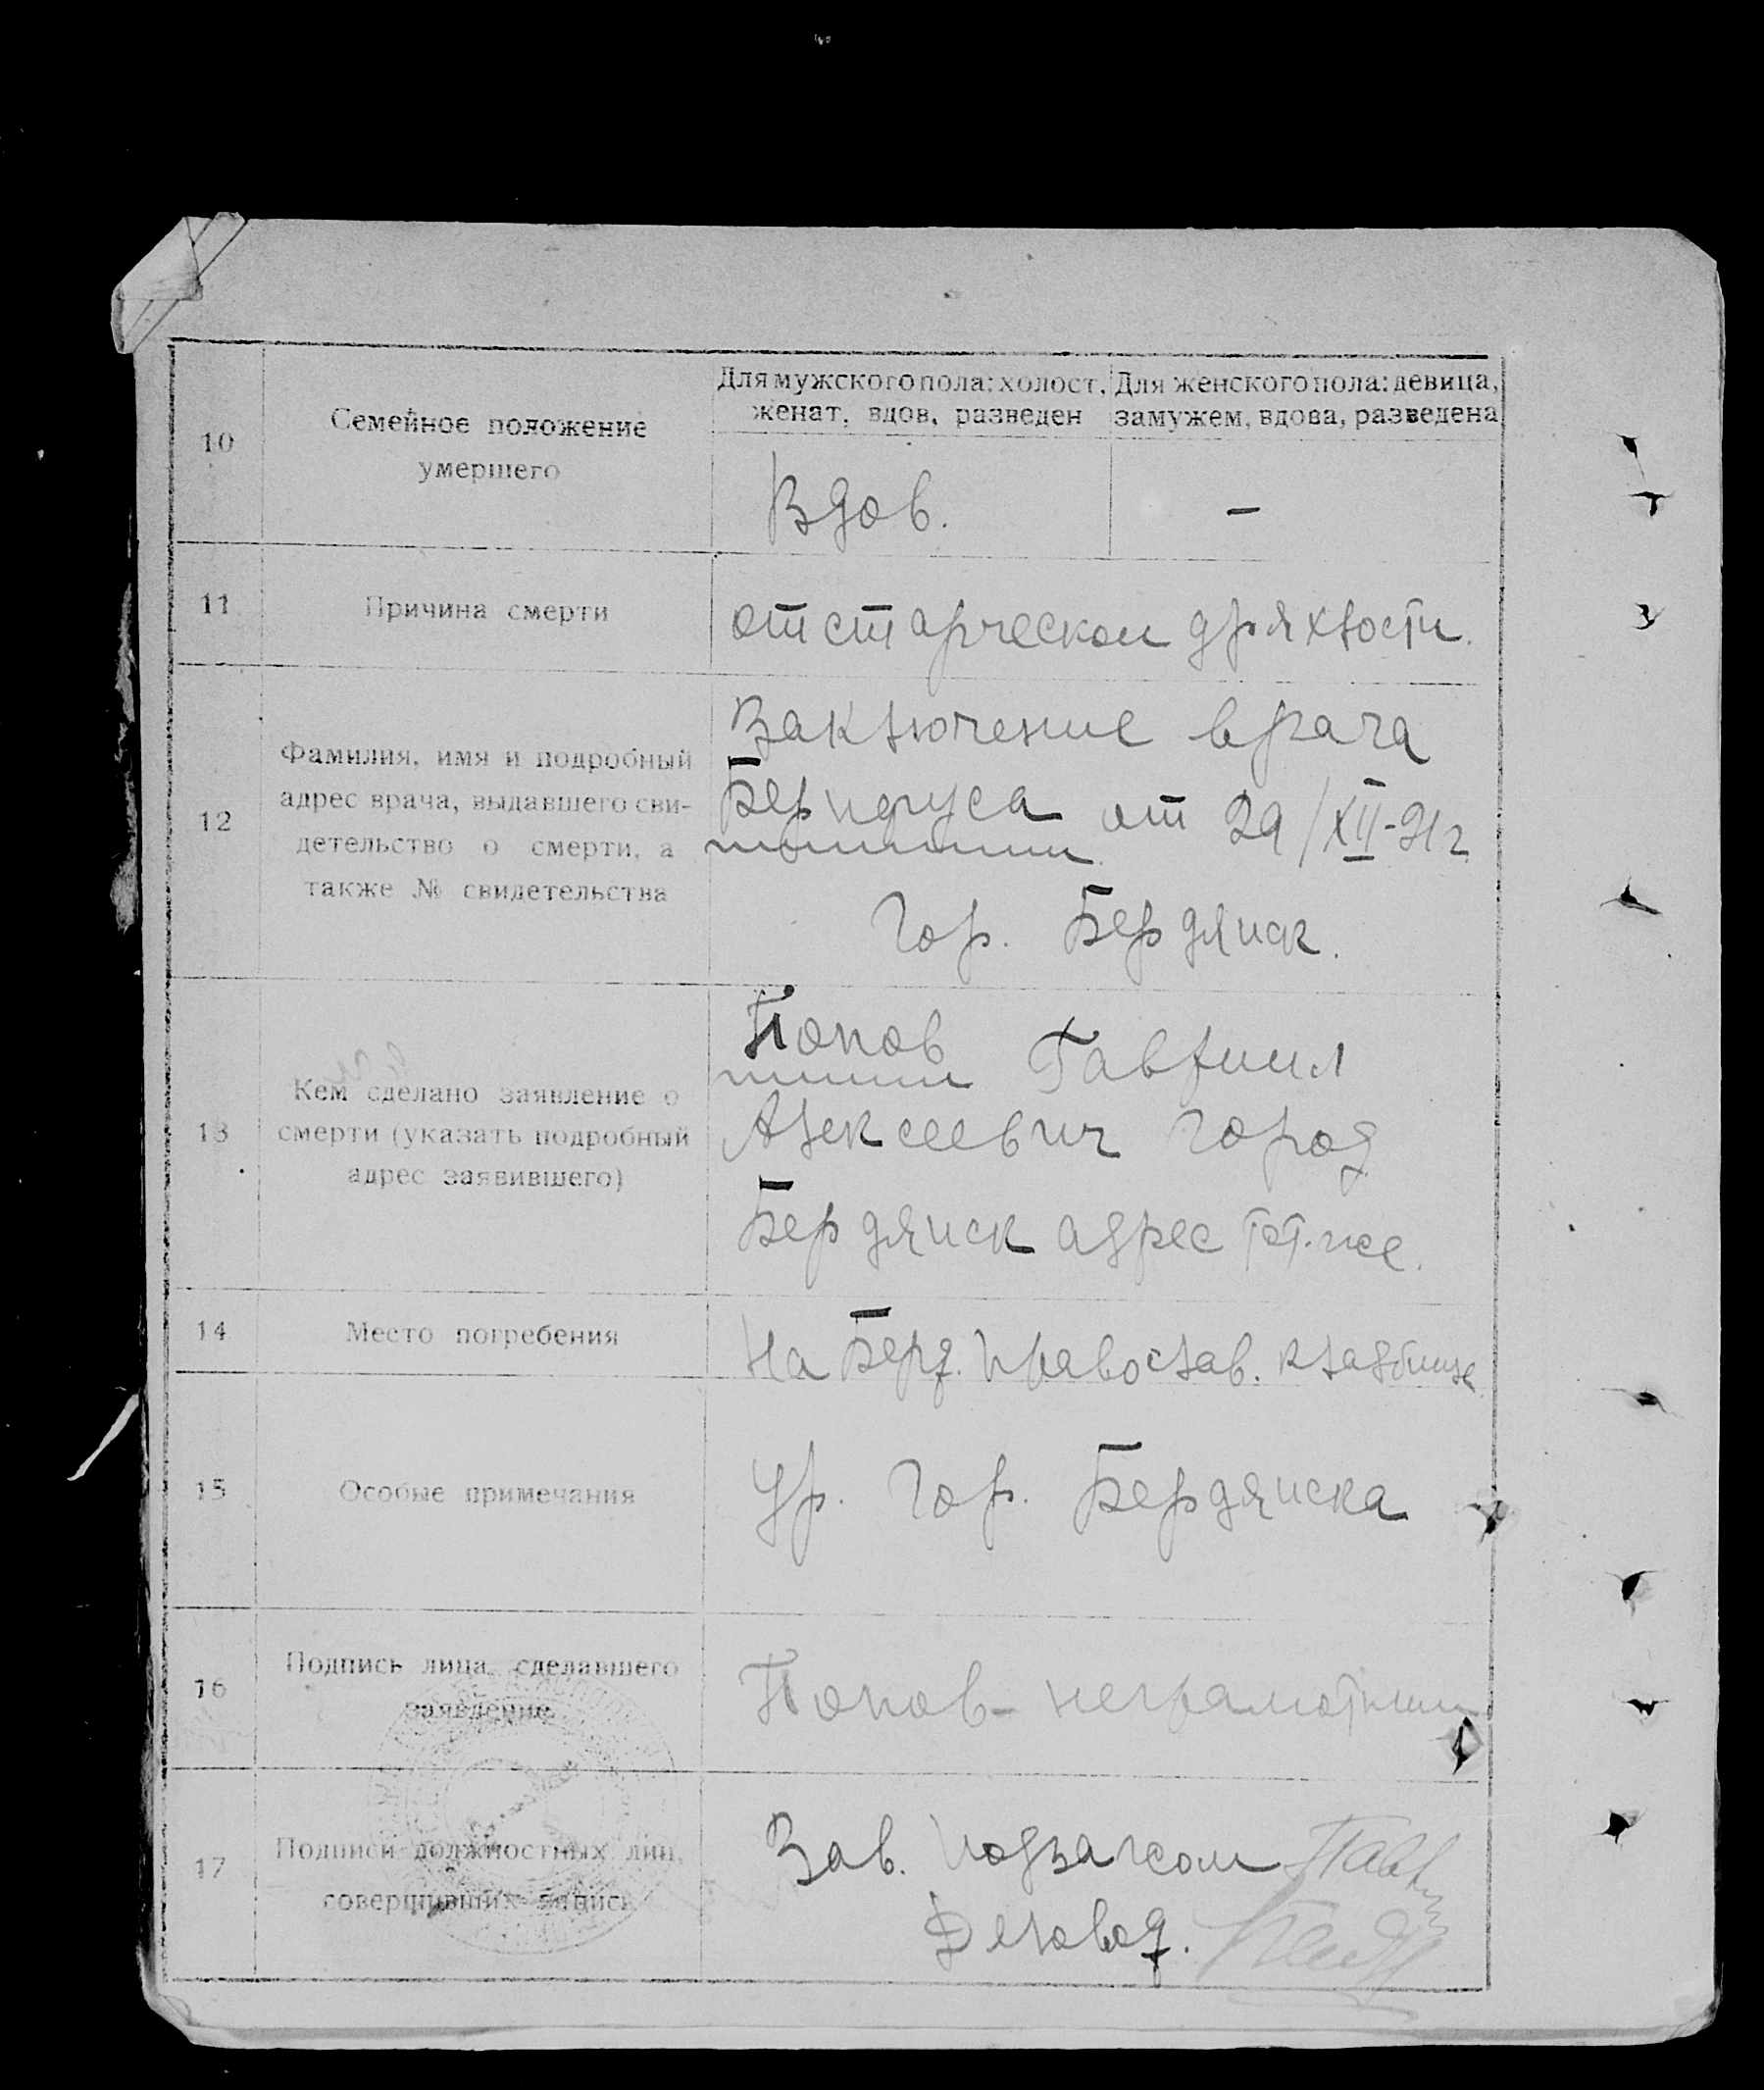 10
Семейное положение
умершего
Для мужского пола: холост,
женат, вдов, разведен
Для женского пола: девица,
замужем, вдова, разведена
Вдов.
–
11
Причина смерти
от старческой дряхлости.
12
Фамилия, имя и подробный
адрес врача, выдавшего сви-
детельство о смерти, а
также № свидетельства
Заключение врача
от 29/XII-21 г.
Гор. Бердянск.
13
Кем сделано заявление о
смерти (указать подробный
адрес заявившего)
Попов Гавриил
Алексеевич город
Бердянск адрес тот-же.
14
Место погребения
На Берд. Православ. кладбище
15
Особые примечания
Ур. Гор. Бердянска
16
Подпись лица, сделавшего
заявление
Попов – неграмотный
17
Подписи должностных лиц,
совершивших запись
Зав. Подзагсом
Деловод.